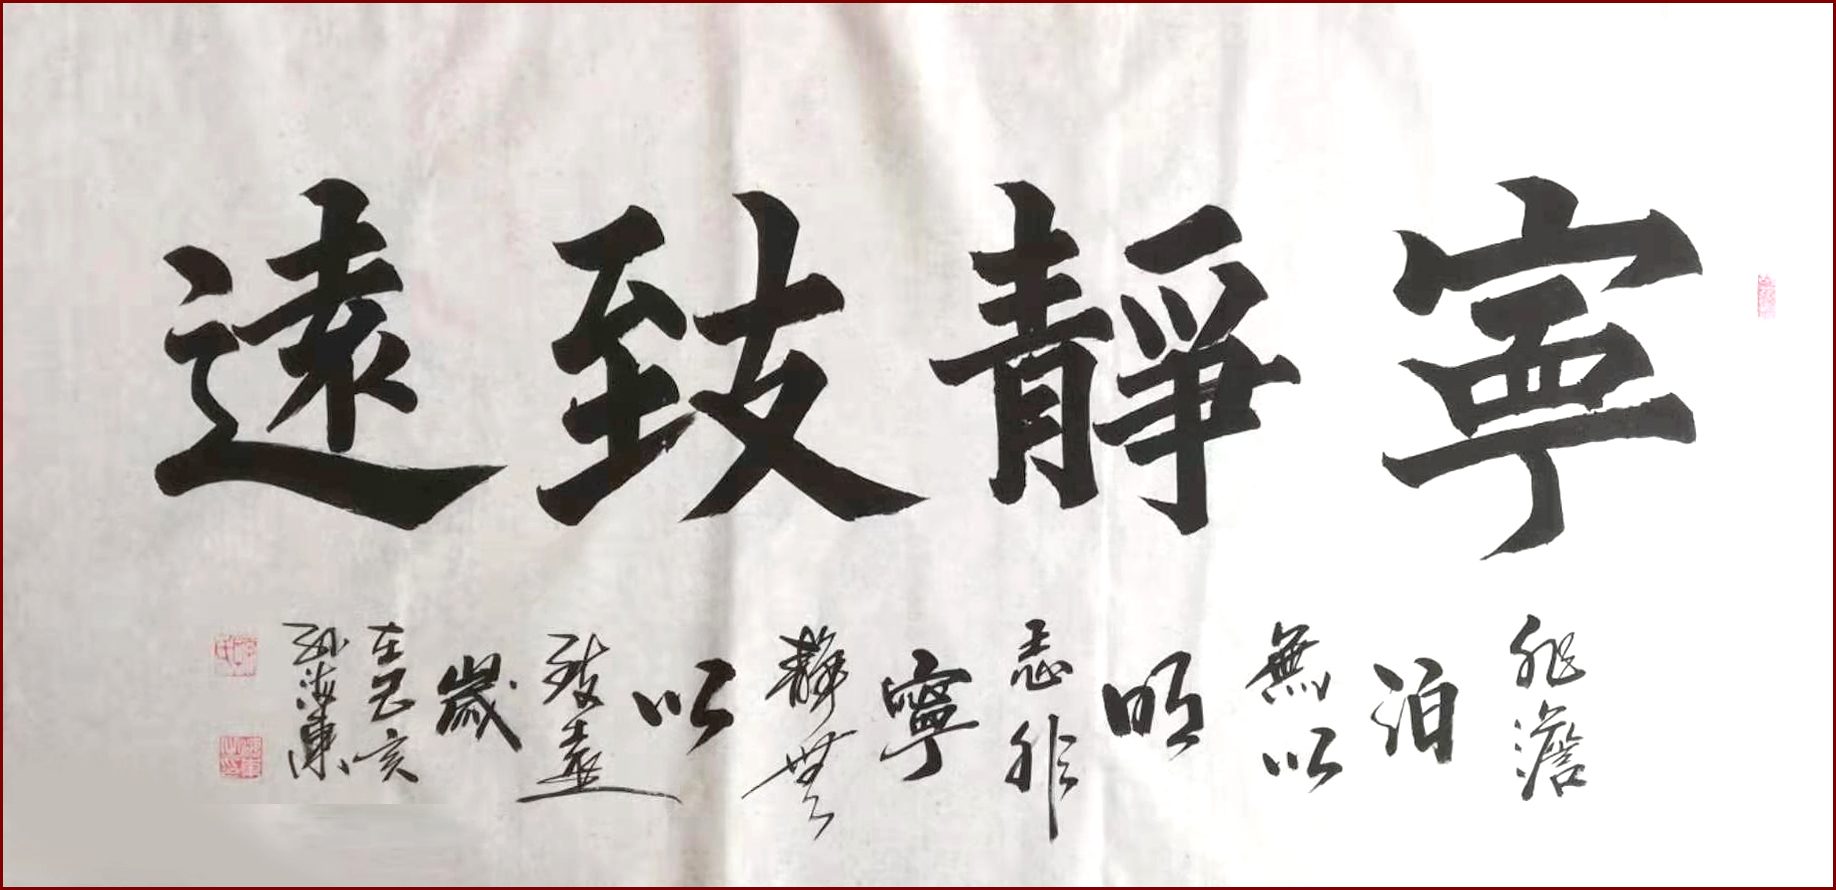 寧靜致遠
非澹
泊
無以
明
志非
寧
靜無
以
致遠
歲
在己亥
孫海東